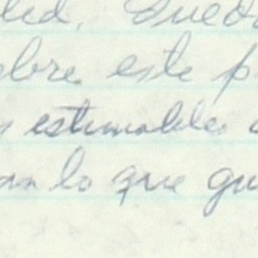 ted. Qued
obre este p
estimables
an lo que qu